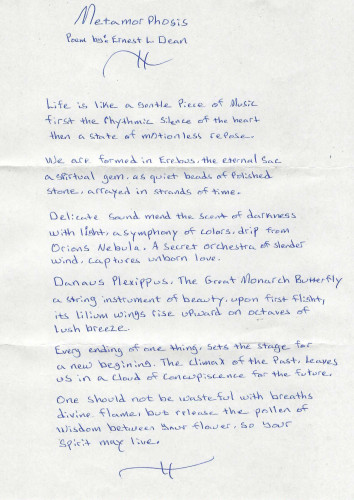 Metamorphosis
Poem by: Ernest L. Dean
Life is like a gentle piece of Music
first the Rhythmic silence of the heart
then a state of motionless repose.
We are formed in Erebus, the eternal sac
a spiritual gem, as quiet beads of Polished
stone, arrayed in strands of time.
Delicate sound mend the scent of darkness
with light, a symphony of colors, drip from
Orions Nebula. A secret orchestra of slender
wind, captures unborn love.
Danaus Plexippus, The Great Monarch Butterfly
a string instrument of beauty, upon first flight,
its lilium wings rise upward on octaves of
Lush breeze.
Every ending of one thing, sets the stage for
a new begining. The climax of the Past, leaves
us in a cloud of concupiscence for the future.
One should not be wasteful with breaths
divine flame, but release the pollen of
wisdom between your flower, so your
spirit may live.